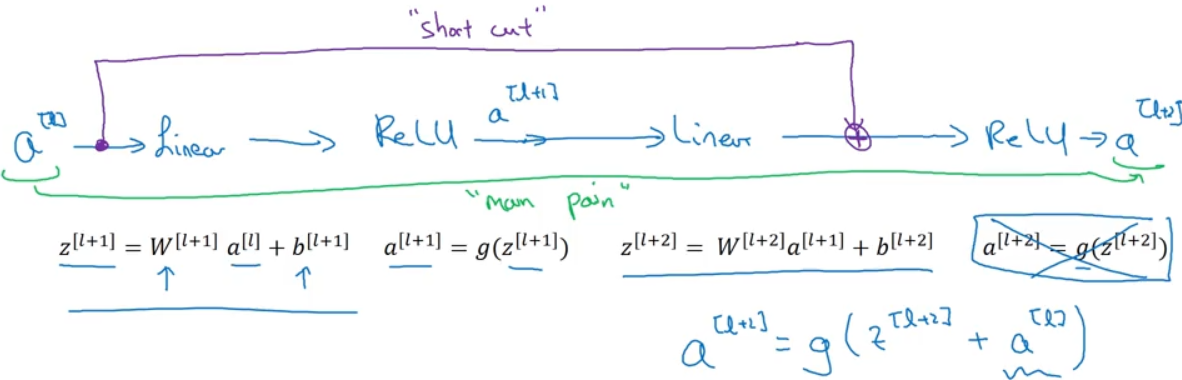 "short cut"
a^[l] → Linear → ReLU a^[l+1] → Linear ⊕ → ReLU → a^[l+2]
"main pain"
z^[l+1] = W^[l+1] a^[l] + b^[l+1]    a^[l+1] = g(z^[l+1])    z^[l+2] = W^[l+2]a^[l+1] + b^[l+2]    a^[l+2] = g(z^[l+2])
a^[l+2] = g(z^[l+2] + a^[l])